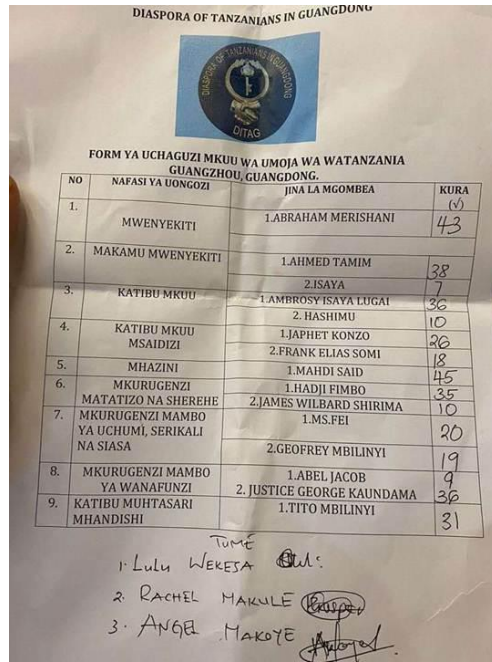 DIASPORA OF TANZANIANS IN GUANGDONG
DIASPORA OF TANZANIANS IN GUANGDONG
DITAG
FORM YA UCHAGUZI MKUU WA UMOJA WA WATANZANIA
GUANGZHOU, GUANGDONG.
NO NAFASI YA UONGOZI JINA LA MGOMBEA KURA (√)
1. MWENYEKITI 1.ABRAHAM MERISHANI 43
2. MAKAMU MWENYEKITI 1.AHMED TAMIM 38
2.ISAYA 7
3. KATIBU MKUU 1.AMBROSY ISAYA LUGAI 36
2. HASHIMU 10
4. KATIBU MKUU MSAIDIZI 1.JAPHET KONZO 26
2.FRANK ELIAS SOMI 18
5. MHAZINI 1.MAHDI SAID 45
6. MKURUGENZI MATATIZO NA SHEREHE 1.HADJI FIMBO 35
2.JAMES WILBARD SHIRIMA 10
7. MKURUGENZI MAMBO YA UCHUMI, SERIKALI NA SIASA 1.MS.FEI 20
2.GEOFREY MBILINYI 19
8. MKURUGENZI MAMBO YA WANAFUNZI 1.ABEL JACOB 9
2. JUSTICE GEORGE KAUNDAMA 36
9. KATIBU MUHTASARI MHANDISHI 1.TITO MBILINYI 31
TUME
1. LULU WEKESA
2. RACHEL MAKULE
3. ANGEL MAKOYE